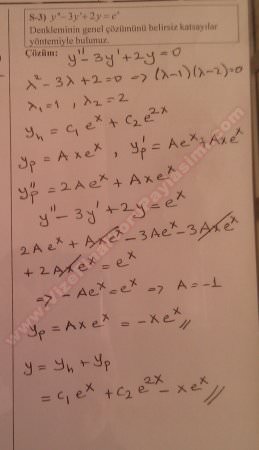 S-3) y''-3y'+2y = eˣ
Denkleminin genel çözümünü belirsiz katsayılar
yöntemiyle bulunuz.
Çözüm: y''-3y'+2y=0
λ²-3λ+2=0 => (λ-1)(λ-2)=0
λ₁=1, λ₂=2
yₕ = c₁eˣ + c₂e²ˣ
yₚ = Axeˣ, yₚ' = Aeˣ+Axeˣ
yₚ'' = 2Aeˣ + Axeˣ
y''-3y'+2y=eˣ
2Aeˣ + Axeˣ - 3Aeˣ - 3Axeˣ
+ 2Axeˣ = eˣ
=> -Aeˣ = eˣ => A=-1
yₚ = Axeˣ = -xeˣ //
y = yₕ + yₚ
= c₁eˣ + c₂e²ˣ - xeˣ //